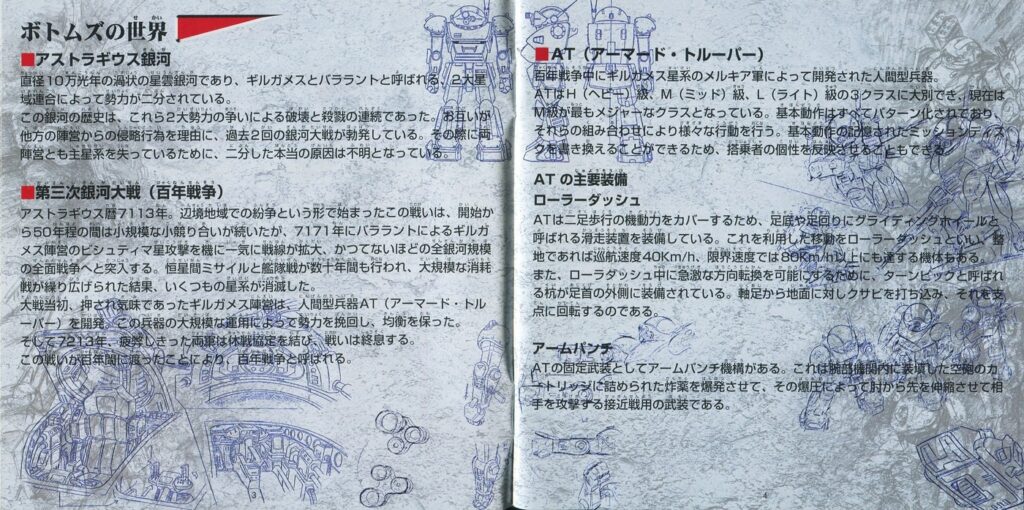 ボトムズの世界
■アストラギウス銀河
直径10万光年の渦状の星雲銀河であり、ギルガメスとバララントと呼ばれる、2大星
域連合によって勢力が二分されている。
この銀河の歴史は、これら2大勢力の争いによる破壊と殺戮の連続であった。お互いが
他方の陣営からの侵略行為を理由に、過去2回の銀河大戦が勃発している。その際に両
陣営とも主星系を失っているために、二分した本当の原因は不明となっている。
■第三次銀河大戦（百年戦争）
アストラギウス暦7113年。辺境地域での紛争という形で始まったこの戦いは、開始か
ら50年程の間は小規模な小競り合いが続いたが、7171年にバララントによるギルガ
メス陣営のビシュティマ星攻撃を機に一気に戦線が拡大、かつてないほどの全銀河規模
の全面戦争へと突入する。恒星間ミサイルと艦隊戦が数十年間も行われ、大規模な消耗
戦が繰り広げられた結果、いくつもの星系が消滅した。
大戦当初、押され気味であったギルガメス陣営は、人間型兵器AT（アーマード・トル
ーパー）を開発。この兵器の大規模な運用によって勢力を挽回し、均衡を保った。
そして7213年、疲弊しきった両軍は休戦協定を結び、戦いは終息する。
この戦いが百年間に渡ったことにより、百年戦争と呼ばれる。
3
■AT（アーマード・トルーパー）
百年戦争中にギルガメス星系のメルキア軍によって開発された人間型兵器。
ATはH（ヘビー）級、M（ミッド）級、L（ライト）級の3クラスに大別でき、現在は
M級が最もメジャーなクラスとなっている。基本動作はすべてパターン化されており、
それらの組み合わせにより様々な行動を行う。基本動作の記憶されたミッションディス
クを書き換えることができるため、搭乗者の個性を反映させることもできる。
ATの主要装備
ローラーダッシュ
ATは二足歩行の機動力をカバーするため、足底や足回りにグライディングホイールと
呼ばれる滑走装置を装備している。これを利用した移動をローラーダッシュといい、整
地であれば巡航速度40Km/h、限界速度では80Km/h以上にも達する機体もある。
また、ローラダッシュ中に急激な方向転換を可能にするために、ターンピックと呼ばれ
る杭が足首の外側に装備されている。軸足から地面に対しクサビを打ち込み、それを支
点に回転するのである。
アームパンチ
ATの固定武装としてアームパンチ機構がある。これは腕部機関内に装填した空砲のカ
ートリッジに詰められた炸薬を爆発させて、その爆圧によって肘から先を伸縮させて相
手を攻撃する接近戦用の武装である。
4